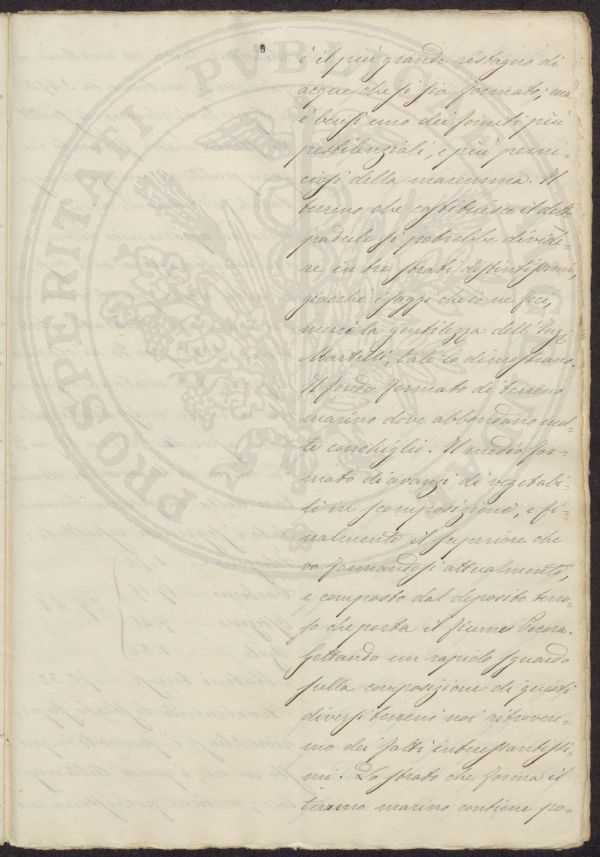 è il più grande ristagno di
acque che si sia formato, ma
è bensì uno dei fomiti più
pestilenziali, e più perni-
ciosi della maremma. Il
terreno che costituisce il detto
padule si potrebbe divide-
re in tre strati distintissimi,
giacchè i saggi che io ne feci,
mercè la gentilezza dell'Ing.
Martelli, tale lo dimostrano.
Il fondo formato di terreno
marino dove abbondano mol-
te conchiglie. Il medio for-
mato di avanzi di vegetabi-
li in scomposizione, e fi-
nalmente il superiore che
va formandosi attualmente,
è composto dal deposito terro-
so che porta il fiume Pecora.
Gettando un rapido sguardo
sulla composizione di questi
diversi terreni noi ritrovere-
mo dei fatti interessantissi-
mi. Lo strato che forma il
terreno marino contiene po-
PROSPERITATI PVBLICAE